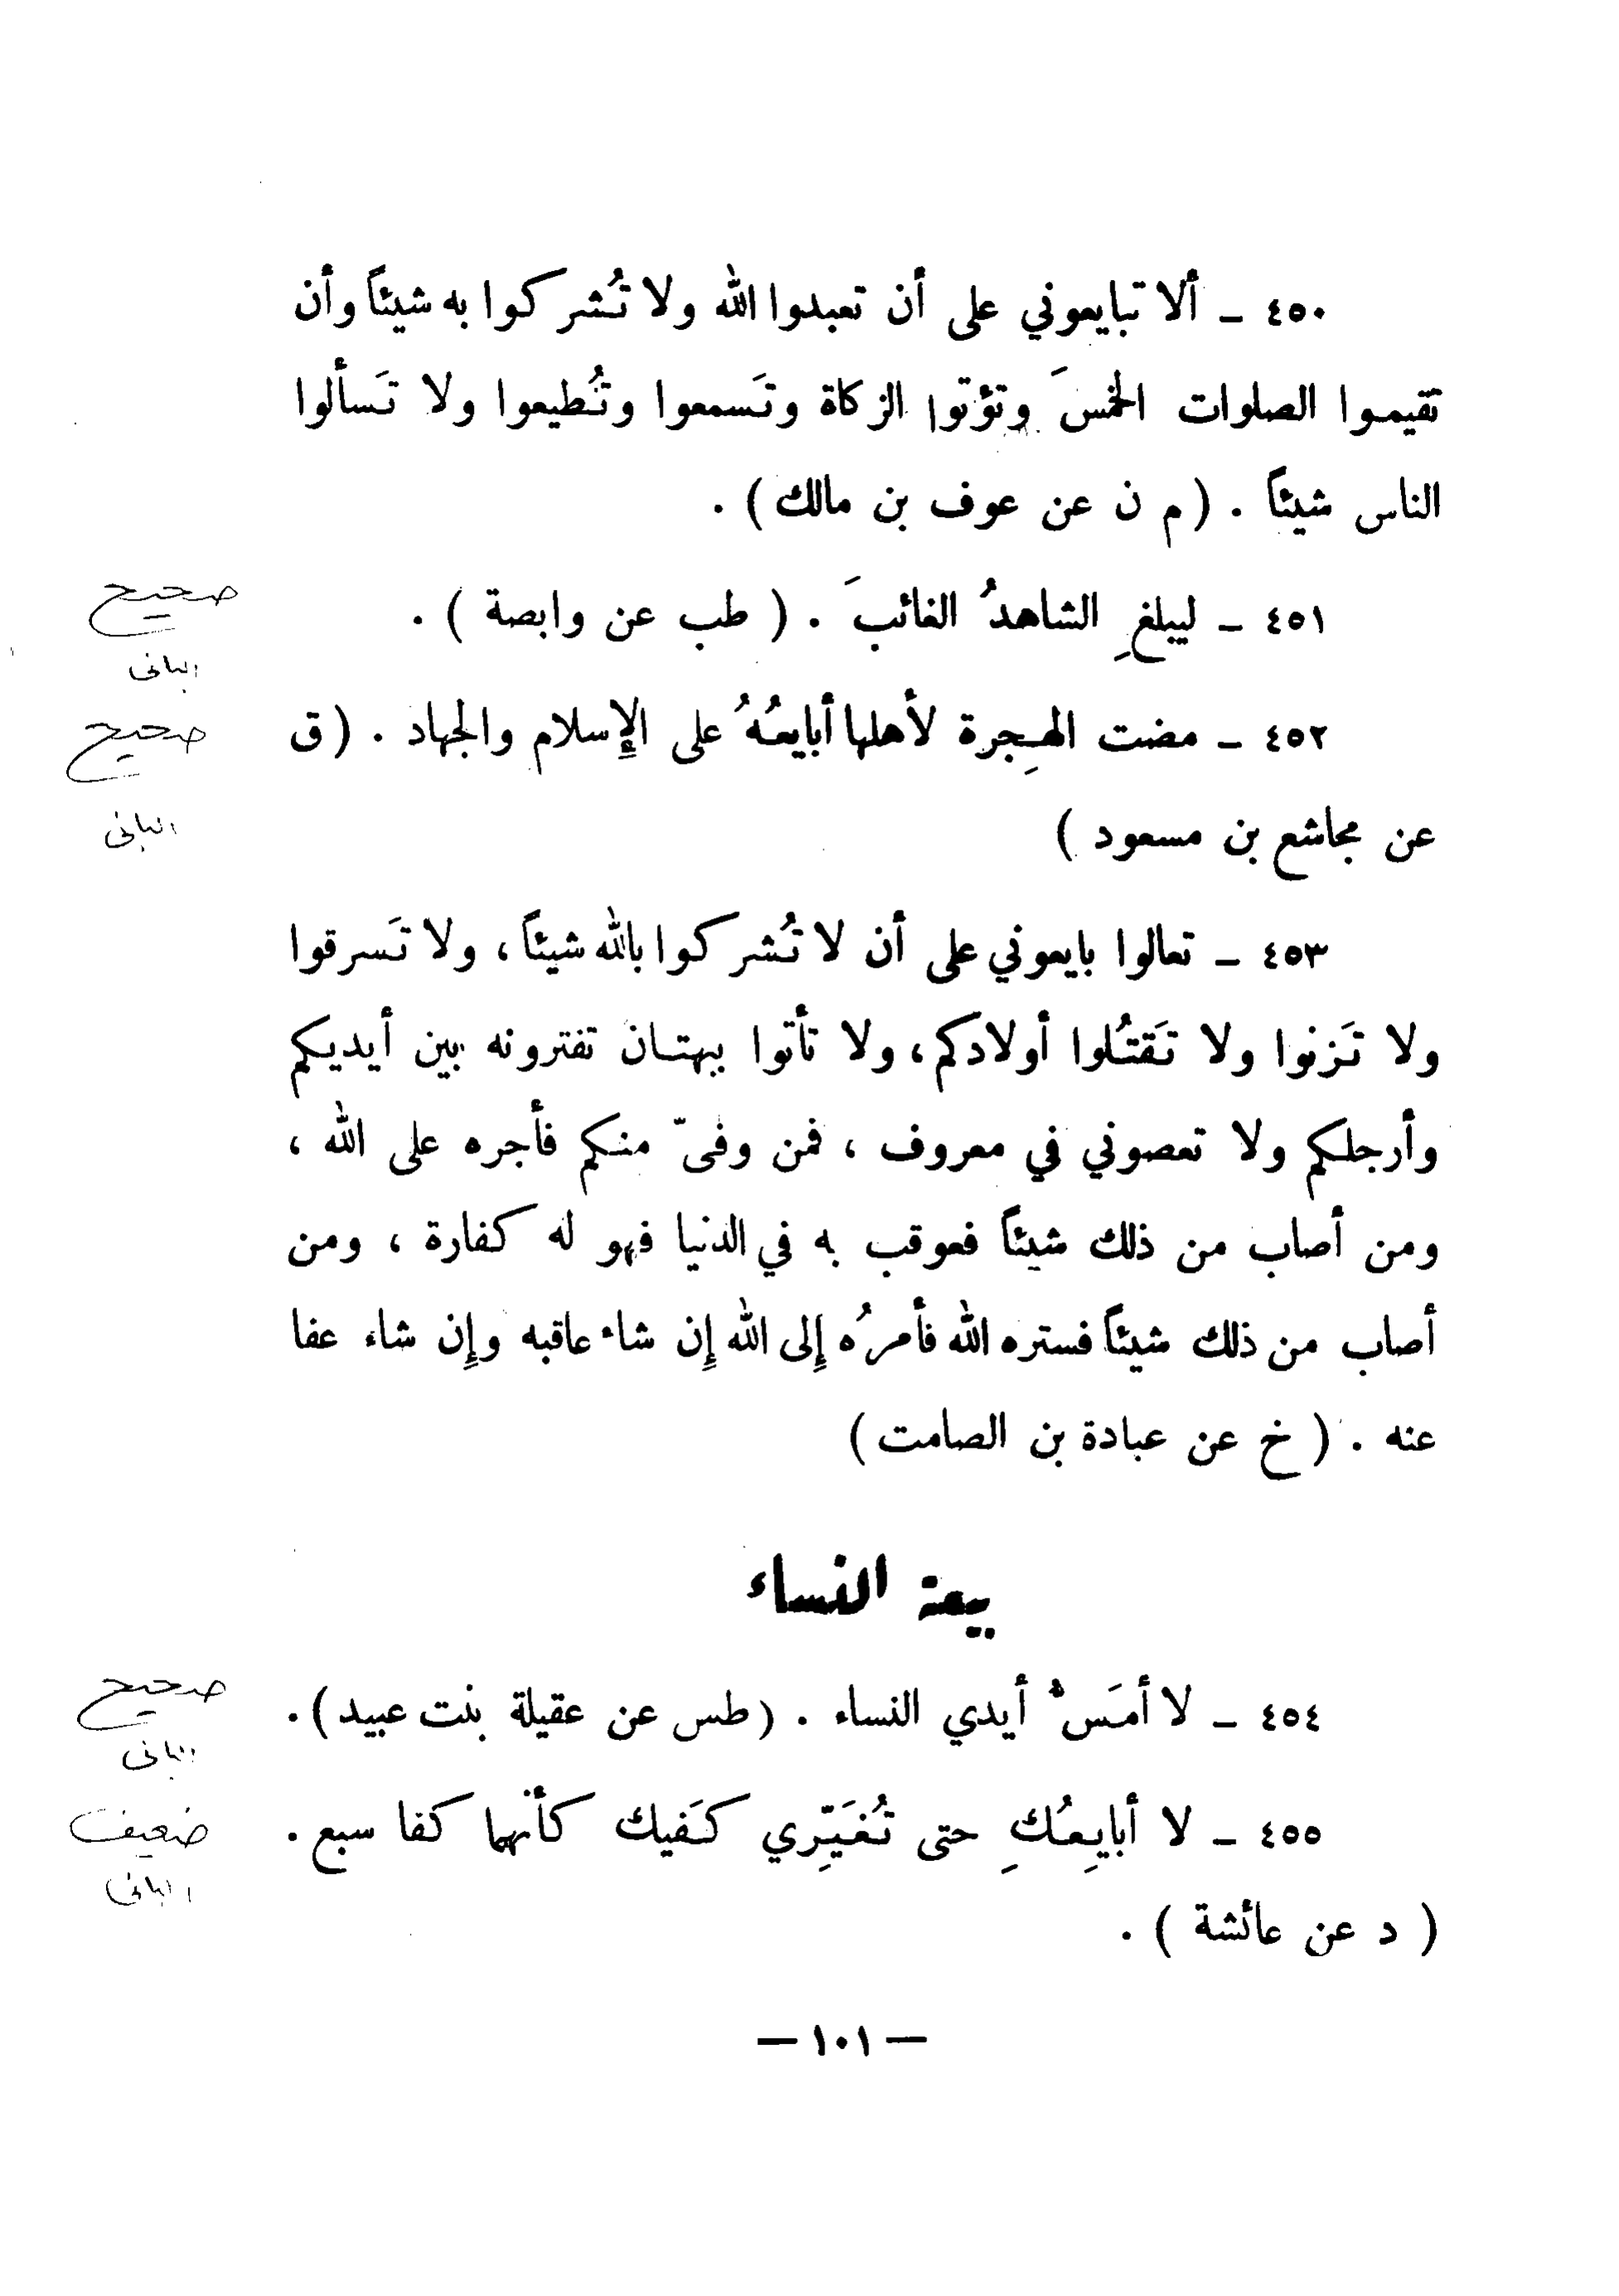 ٤٥٠ ـ ألا تبايعوني على أن تعبدوا الله ولا تُشركوا به شيئاً وأن
تقيموا الصلوات الخمسَ وتؤتوا الزكاة وتَسمعوا وتُطيعوا ولا تَسألوا
الناس شيئاً . (م ن عن عوف بن مالك) .
٤٥١ ـ ليبلغِ الشاهدُ الغائبَ . ( طب عن وابصة ) .
صحيح
البانى
٤٥٢ ـ مضت الهِجرة لأهلها أبايعُهُ على الإسلام والجهاد . (ق
صحيح
عن مجاشع بن مسعود )
البانى
٤٥٣ ـ تعالوا بايعوني على أن لا تُشركوا بالله شيئاً ، ولا تَسرقوا
ولا تَزنوا ولا تَقتُلوا أولادكم، ولا تأتوا ببهتان تفترونه بين أيديكم
وأرجلكم ولا تعصوني في معروف ، فمن وفىّ منكم فأجره على الله ،
ومن أصاب من ذلك شيئاً فعوقب به في الدنيا فهو له كفارة ، ومن
أصاب من ذلك شيئاً فستره الله فأمرُه إلى الله إن شاء عاقبه وإن شاء عفا
عنه . ( خ عن عبادة بن الصامت )
بيعة النساء
٤٥٤ ـ لا أمَسُّ أيدي النساء . (طس عن عقيلة بنت عبيد) .
صحيح
البانى
٤٥٥ ـ لا أبايِعُكِ حتى تُغَيِّري كَفيك كأنهما كفا سبع .
ضعيف
البانى
( د عن عائشة ) .
— ١٠١ —